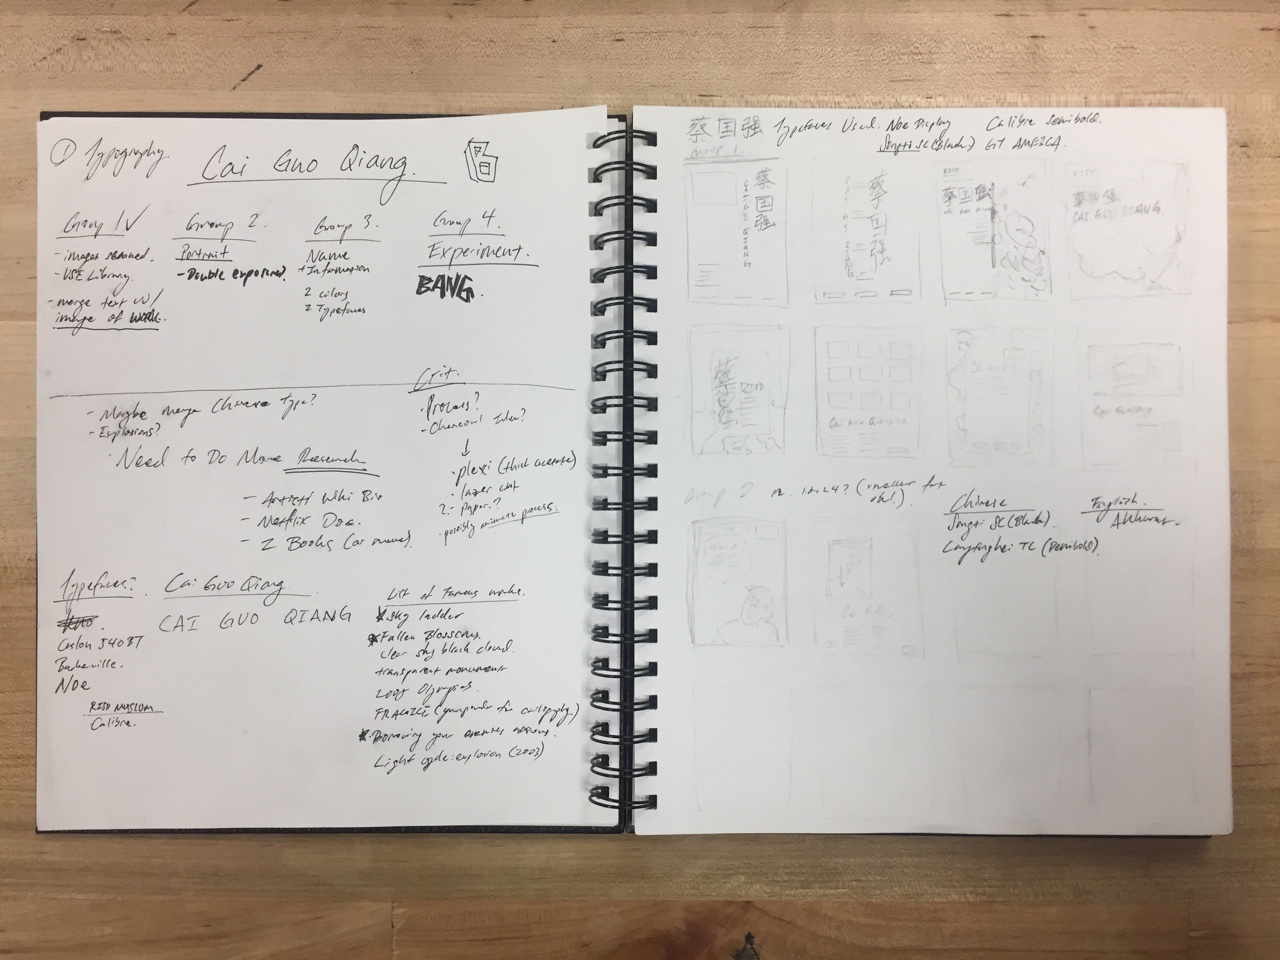 ① Typography
Cai Guo Qiang.
Group 1 ✓
- images scanned.
- USE Library.
- merge text w/
image of work.
Group 2.
Portrait
- Double exposured.
Group 3.
Name
+ Information
2 colors
2 Typefaces
Group 4.
Experiment.
BANG.
- Maybe merge Chinese type?
- Explosions?
- Need to Do More Research
- Artist Wiki Bio
- Netflix Doc.
- 2 Books
Crit.
- Process?
- Charcoal Idea?
↓
- plexi (thick acetate)
- lazer cut
2 - Paper?
- possibly animate process.
Typefaces?
Caslon 540 BT
Baskerville.
Noe
RISD MUSEUM
Calibre.
Cai Guo Qiang.
CAI GUO QIANG
List of Famous works.
* Sky ladder
* Fallen Blossoms.
Clear sky black cloud.
transparent monument
2008 Olympics.
FRAGILE (gunpowder for calligraphy)
* Borrowing your enemies arrows.
Light cycle: explosion (2003)
蔡国强
Typefaces Used: Noe Display Calibre Semibold.
Songti SC (Black) GT AMERICA.
Group 1.
蔡国强
CAI GUO QIANG
蔡国强
CAI GUO QIANG
蔡国强
CAI GUO QIANG
蔡国强
CAI GUO QIANG.
蔡国强
Cai Guo Qiang
Group 2
Chinese
Songti SC (Black).
Lantinghei TC (Demibold).
English.
Akkurat.